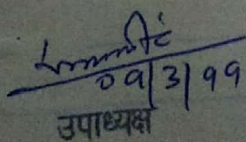 09/3/99
उपाध्यक्ष